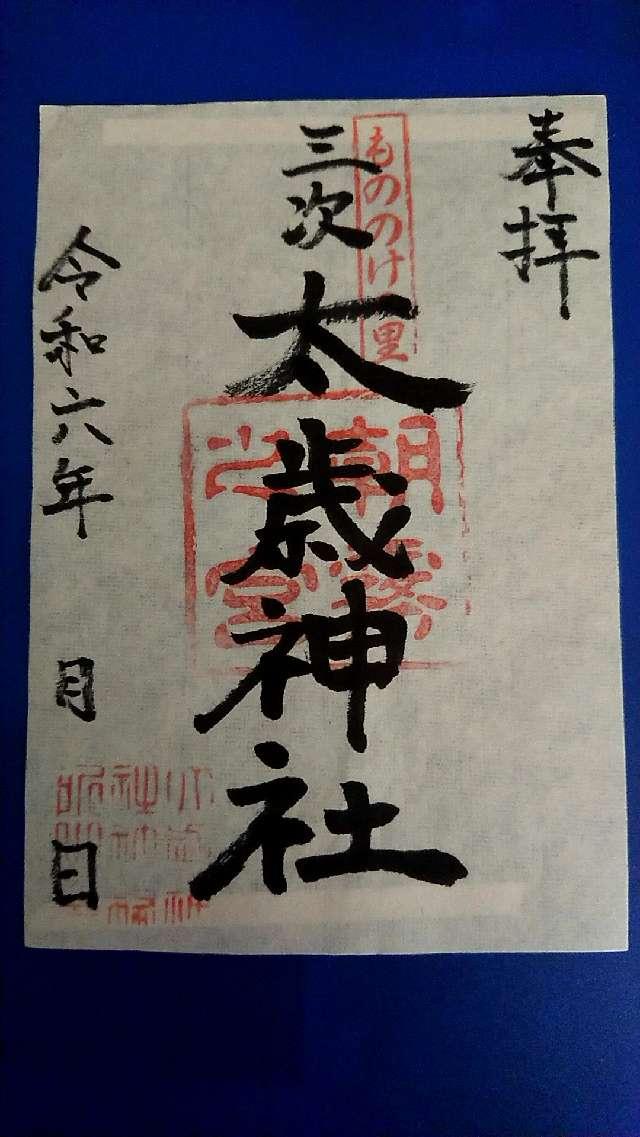 奉拝
もののけの里
三次
太歳神社
令和六年
月
日